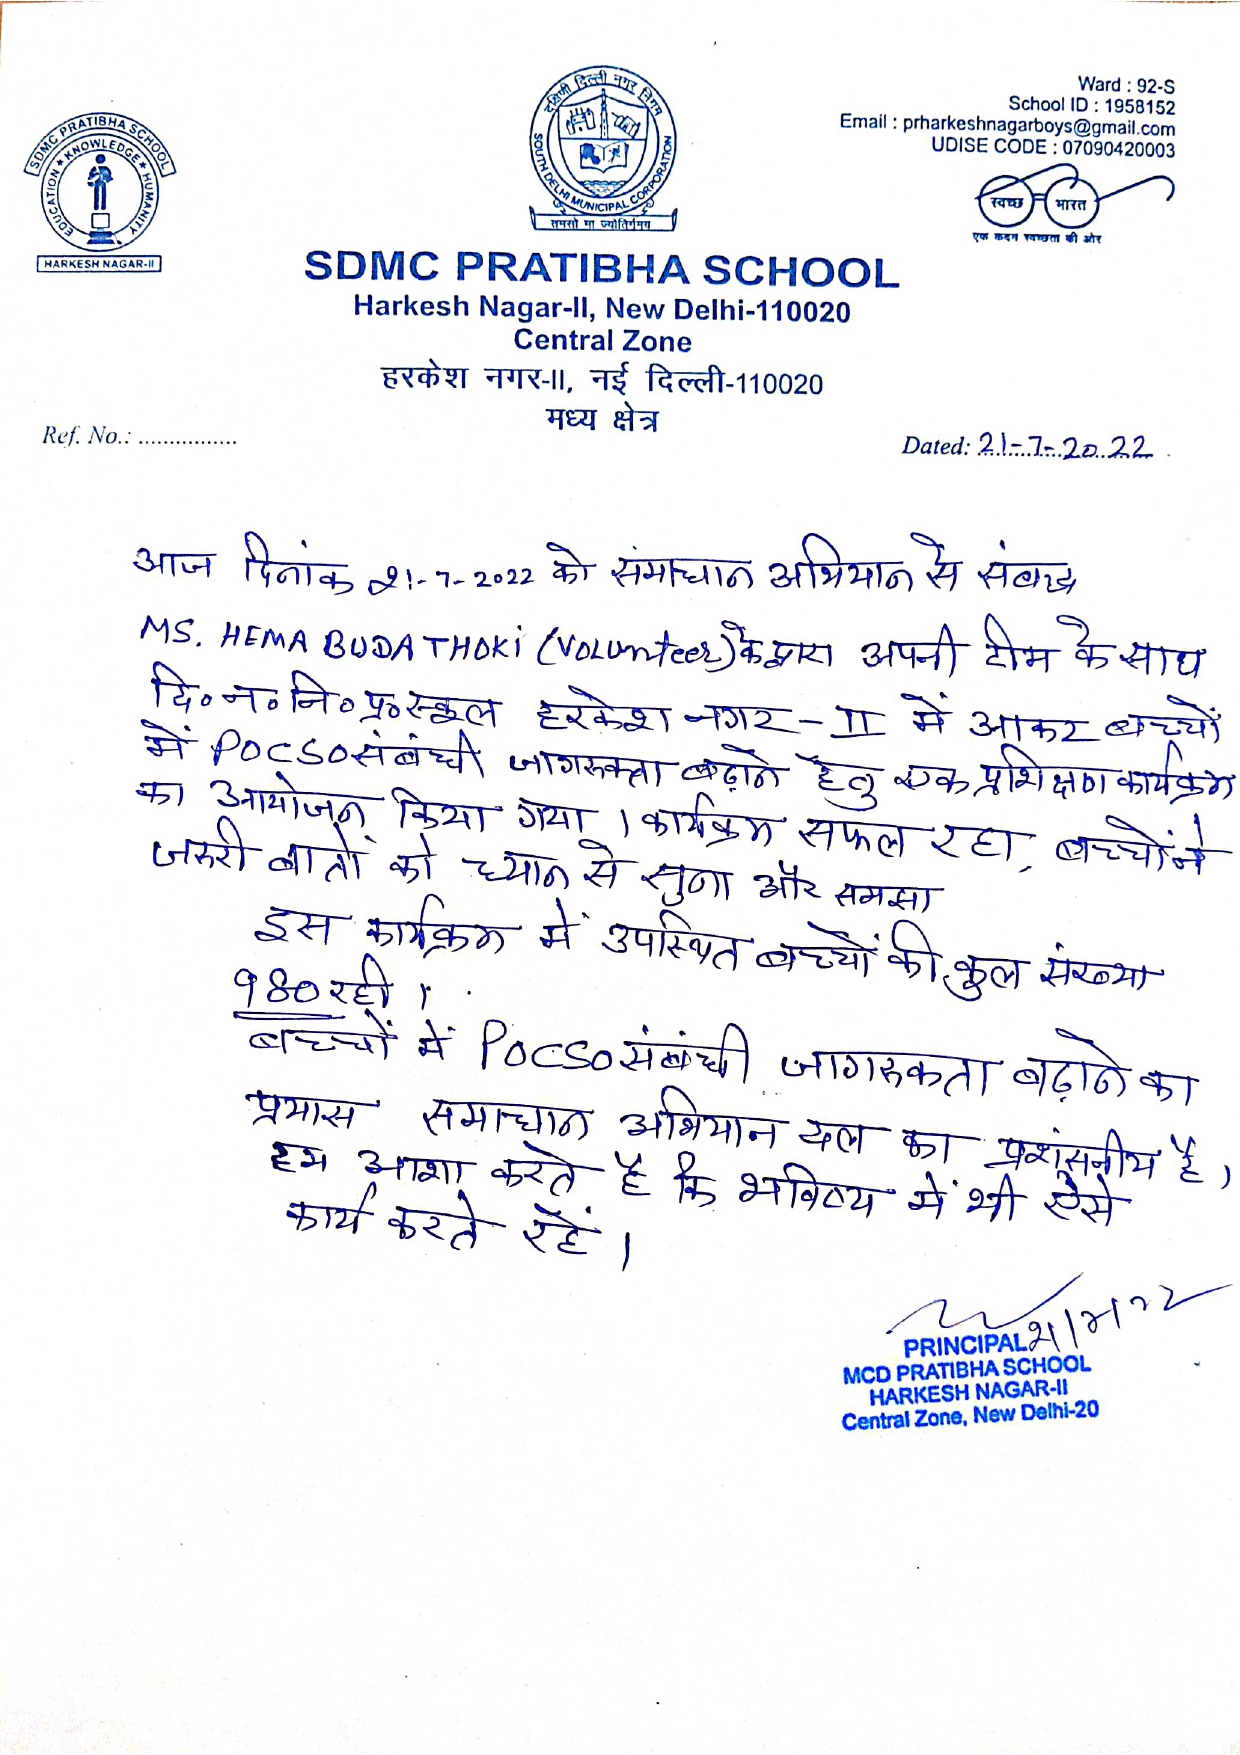 SDMC PRATIBHA SCHOOL
EDUCATION ★ KNOWLEDGE ★ HUMANITY
HARKESH NAGAR-II
दक्षिणी दिल्ली नगर निगम
SOUTH DELHI MUNICIPAL CORPORATION
तमसो मा ज्योतिर्गमय
Ward : 92-S
School ID : 1958152
Email : prharkeshnagarboys@gmail.com
UDISE CODE : 07090420003
स्वच्छ भारत
एक कदम स्वच्छता की ओर
SDMC PRATIBHA SCHOOL
Harkesh Nagar-II, New Delhi-110020
Central Zone
हरकेश नगर-II, नई दिल्ली-110020
मध्य क्षेत्र
Ref. No.: ................
Dated: 21-7-2022
आज दिनांक 21-7-2022 को समाधान अभियान से संबद्ध
MS. HEMA BUDATHOKI (VOLUNTEER) के द्वारा अपनी टीम के साथ
दि॰न॰नि॰प्र॰स्कूल हरकेश नगर-II में आकर बच्चों
में POCSO संबंधी जागरुकता बढ़ाने हेतु एक प्रशिक्षण कार्यक्रम
का आयोजन किया गया । कार्यक्रम सफल रहा, बच्चों ने
जरुरी बातों को ध्यान से सुना और समझा
इस कार्यक्रम में उपस्थित बच्चों की कुल संख्या
980 रही ।
बच्चों में POCSO संबंधी जागरुकता बढ़ाने का
प्रयास समाधान अभियान दल का प्रशंसनीय है,
हम आशा करते है कि भविष्य में भी ऐसे
कार्य करते रहें ।
PRINCIPAL
MCD PRATIBHA SCHOOL
HARKESH NAGAR-II
Central Zone, New Delhi-20